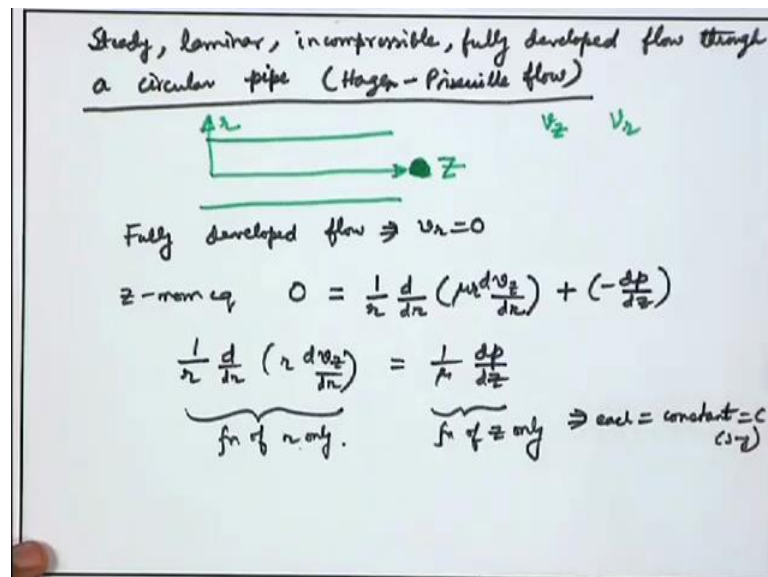 Steady, laminar, incompressible, fully developed flow through
a circular pipe (Hagen-Poiseuille flow)
r
v_z v_r
z
Fully developed flow ⇒ v_r=0
z-mom eq 0 = 1/r d/dr (μr dv_z/dr) + (-dp/dz)
1/r d/dr (r dv_z/dr) = 1/μ dp/dz
fn of r only. fn of z only ⇒ each = constant = C
(say)